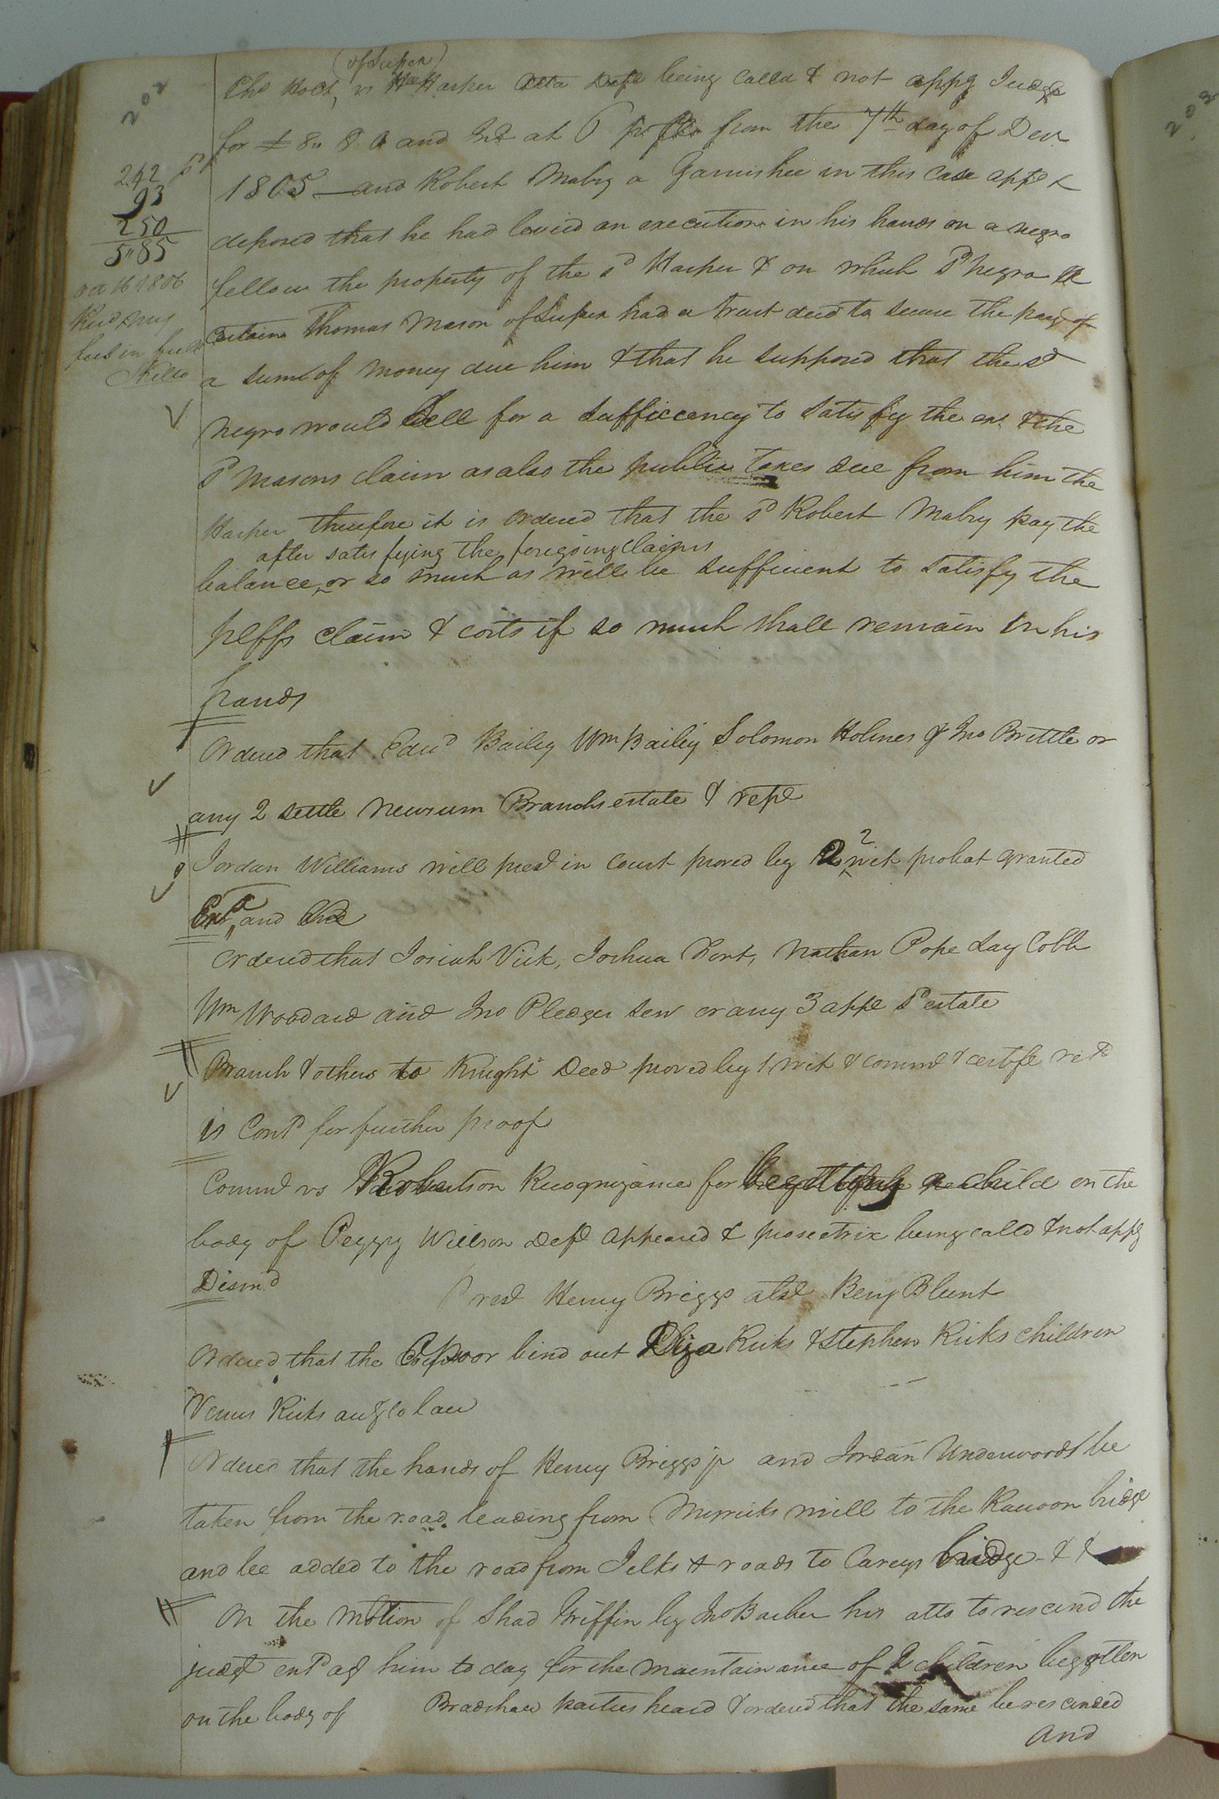 202
(of Super)
Chs Holt, vs Wm Harper Atta Deft being called & not appg Judgt
for £ 8.. 8. 0 and Int at 5 pr from the 7th day of Decr
1805 and Robert Mabry a Garnishee in this case appd &
deposed that he had levied an execution in his hands on a negro
fellow the property of the sd Harper & on which sd negro a
Certain Thomas Mason of Super had a trust deed to secure the pay of
a sum of money due him & that he supposed that the sd
negro would Sell for a Sufficcency to Satisfy the ex. & the
sd Masons claim as also the public taxes due from him the
Harper therefore it is ordered that the sd Robert Mabry pay the
after satisfying the foregoing claims
balance, or so much as will be sufficient to satisfy the
pltffs claim & costs if so much shall remain in his
hands
Ordered that Edwd Bailey Wm Bailey Solomon Holmes & Jno Brittle or
any 2 settle Newsum Branchs estate & rept
Jordan Williams will presd in court proved by 2 wit probat granted
2
Exr and
Ordered that Josiah Vick, Joshua Fort, Nathan Pope Lay Cobb
Wm Woodard and Jno Pledger sen or any 3 appe sd estate
Branch & others to Knight Deed proved by 1 wit & comme & certife
is Contd for further proof
Commth vs Robertson Recognizance for begetting a child on the
body of Peggy Willson Deft appeared & prosectrix being calld & not appg
Dismd
Prest Henry Briggs abst Benj Blunt
Ordered that the Ovrspoor bind out Eliza Ricks & Stephen Ricks children
Venus Ricks acc to law
Ordered that the hands of Henry Briggs jr and Jordan Underwoods be
taken from the road leading from Merricks mill to the Racoon bridge
and be added to the road from Jelks + roads to Careys bridge &
On the Motion of Shad Griffin by Jno Barber his atto to rescind the
judgt entd agt him to day for the maintainance of 2 children begotten
on the body of Bradshaw parties heard & ordered that the same be rescinded
and
242
93
250
5"85
oct 16 1806
Recd my
fees in full
203